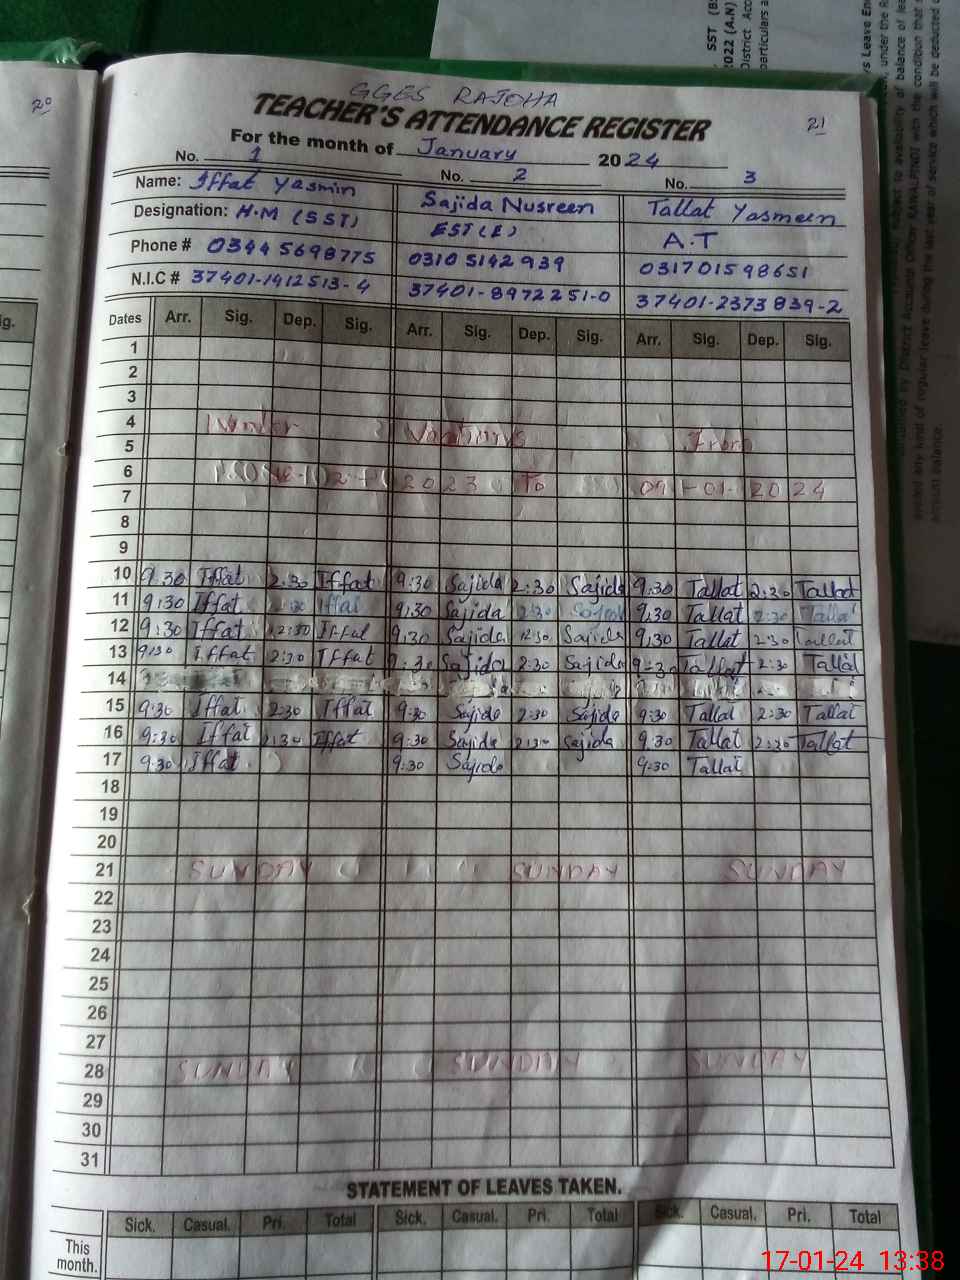 20
GGES RAJOHA
21
TEACHER'S ATTENDANCE REGISTER
For the month of January 2024
No. 1 No. 2 No. 3
Name: Iffat Yasmin Sajida Nusreen Tallat Yasmeen
Designation: H.M (SST) EST(E) A.T
Phone # 03445698775 03105142939 031701598651
N.I.C # 37401-1412513-4 37401-8972251-0 37401-2373839-2
Dates Arr. Sig. Dep. Sig. Arr. Sig. Dep. Sig. Arr. Sig. Dep. Sig.
1
2
3
4 Winter From
5
6 2023 To 09-01-2024
7
8
9
10 9:30 Iffat 2:30 Iffat 9:30 Sajida 2:30 Sajida 9:30 Tallat 2:30 Tallat
11 9:30 Iffat 2:30 Iffat 9:30 Sajida 2:30 Sajida 9:30 Tallat 2:30 Tallat
12 9:30 Iffat 12:30 Iffat 9:30 Sajida 12:30 Sajida 9:30 Tallat 2:30 Tallat
13 9:30 Iffat 2:30 Iffat 9:30 Sajida 2:30 Sajida 9:30 Tallat 2:30 Tallat
14
15 9:30 Iffat 2:30 Iffat 9:30 Sajida 2:30 Sajida 9:30 Tallat 2:30 Tallat
16 9:30 Iffat 2:30 Iffat 9:30 Sajida 2:30 Sajida 9:30 Tallat 2:30 Tallat
17 9:30 Iffat 9:30 Sajida 9:30 Tallat
18
19
20
21 SUNDAY SUNDAY SUNDAY
22
23
24
25
26
27
28 SUNDAY SUNDAY SUNDAY
29
30
31
STATEMENT OF LEAVES TAKEN.
Sick. Casual. Pri. Total Sick. Casual. Pri. Total Sick. Casual. Pri. Total
This month.
17-01-24 13:38